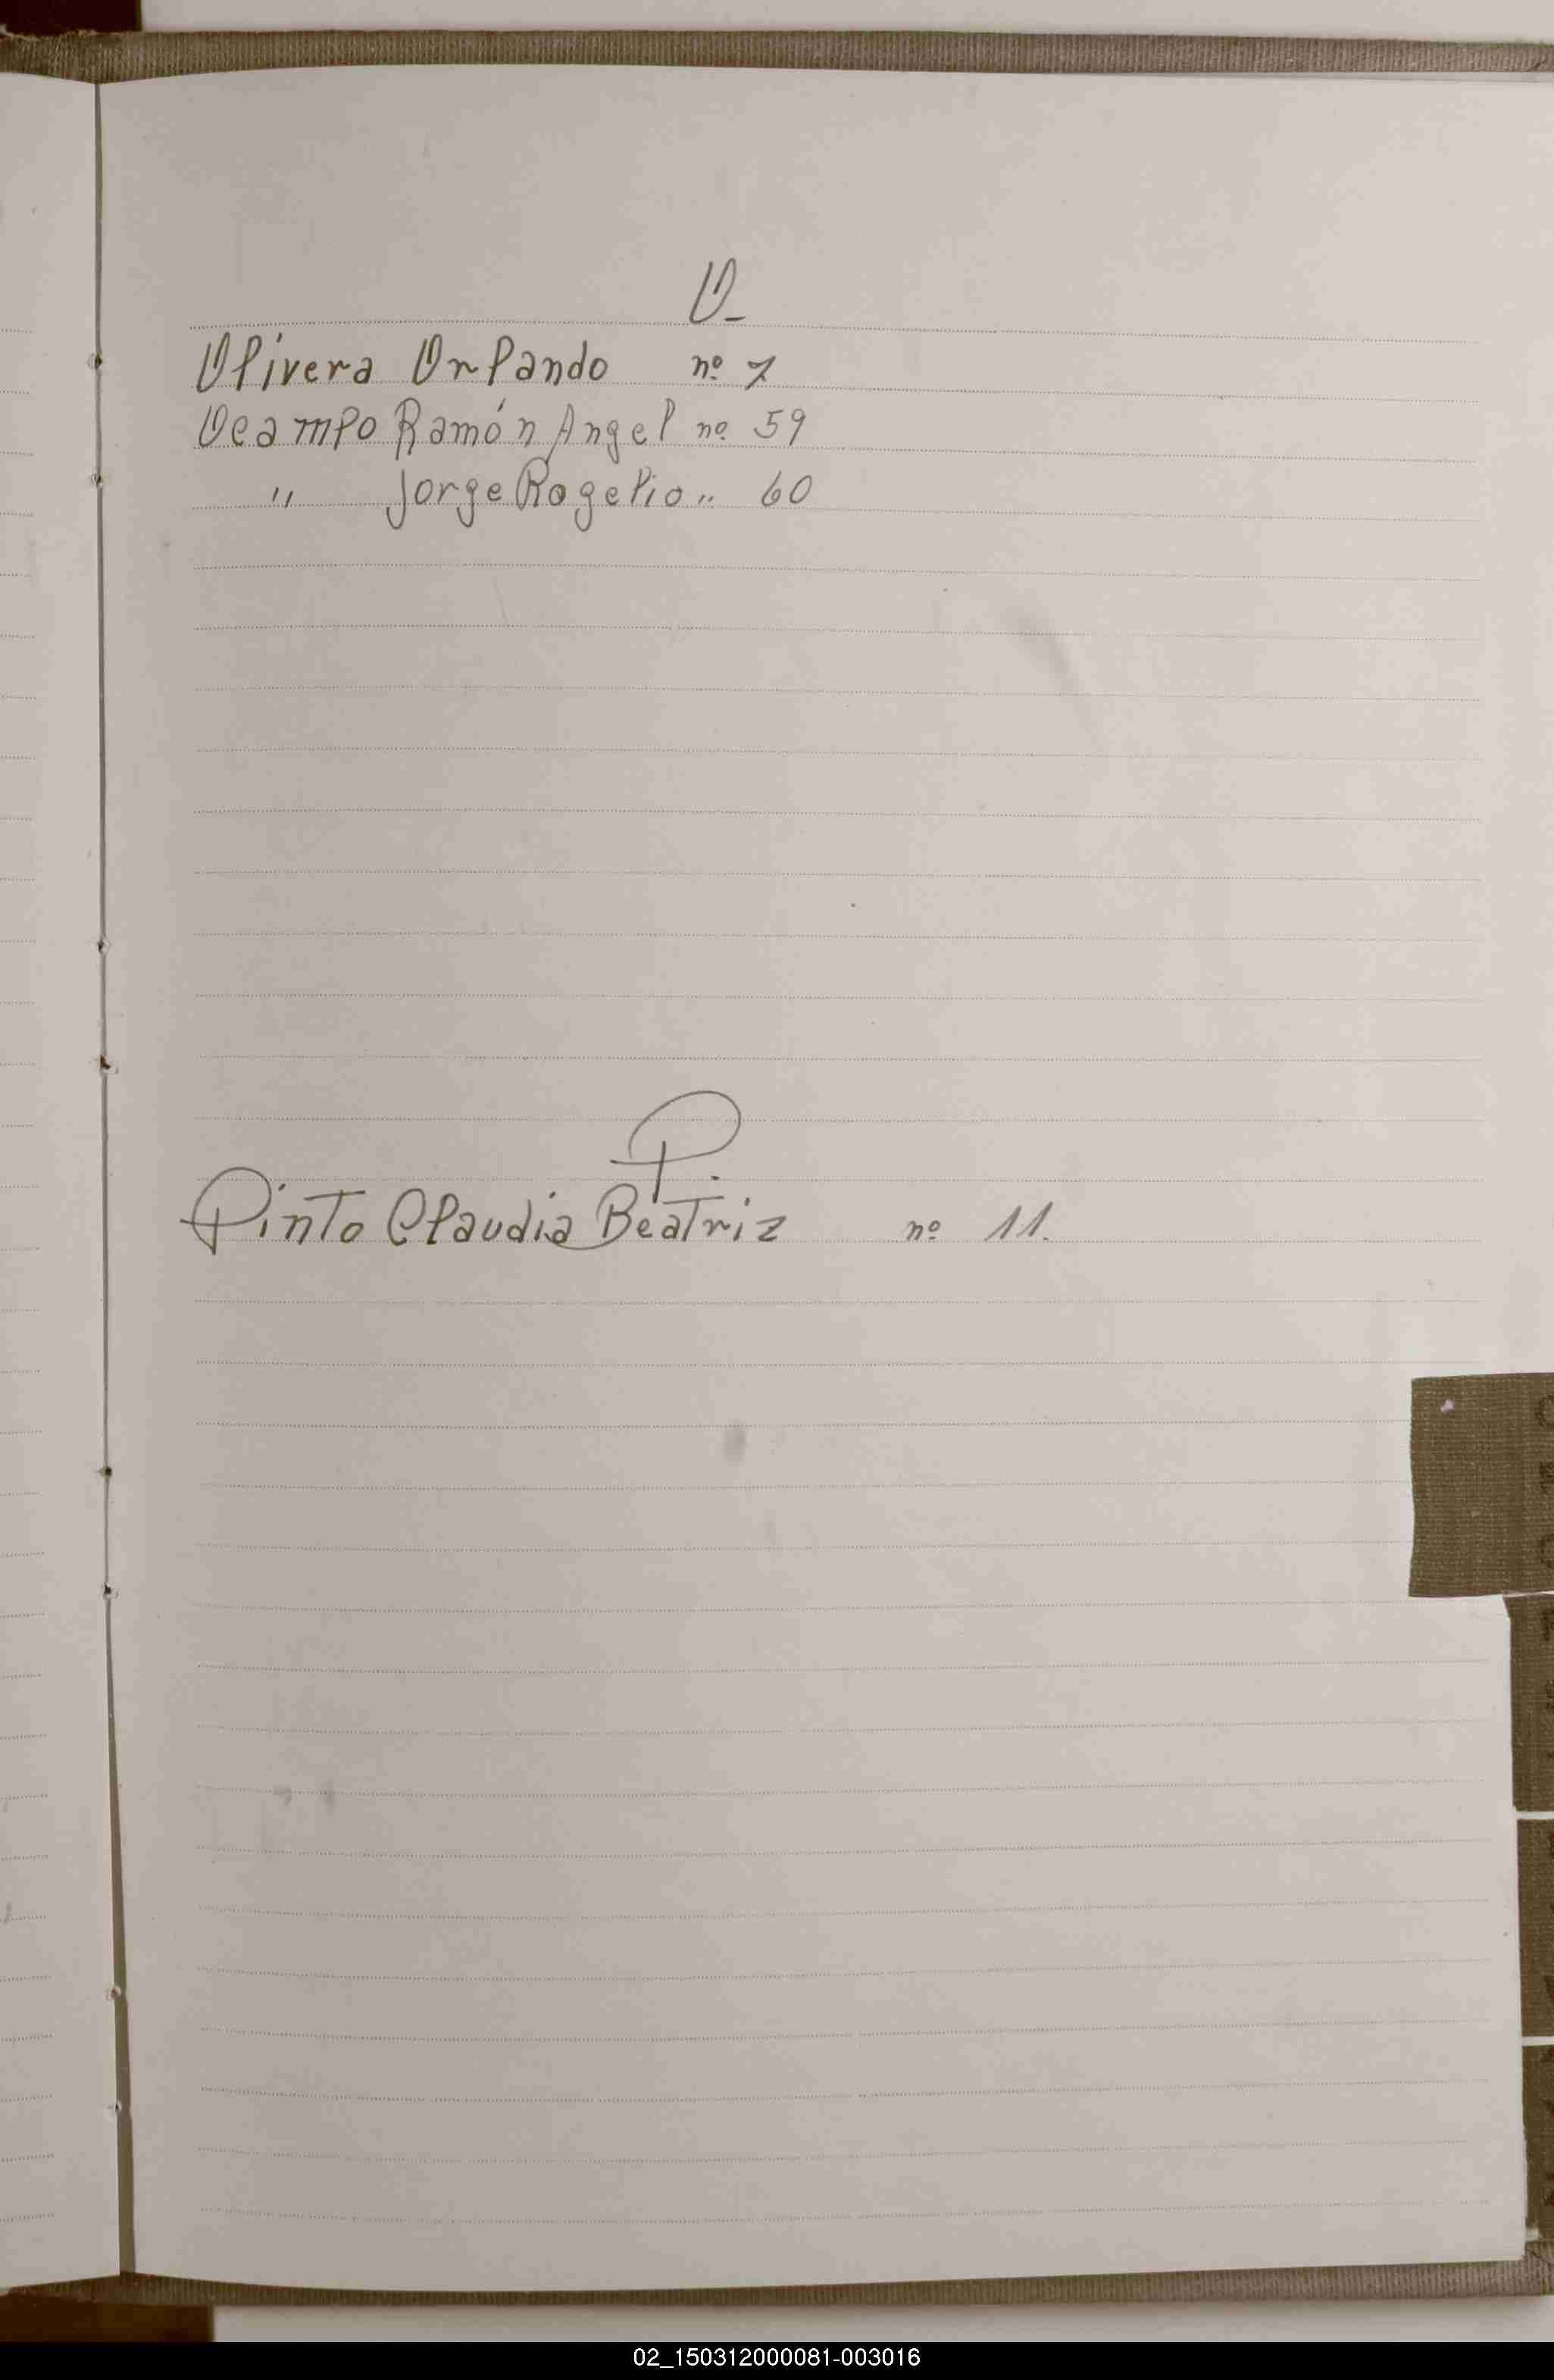 O_
Olivera Orlando nº 7
Ocampo Ramón Angel nº 59
" Jorge Rogelio " 60
P.
Pinto Claudia Beatriz nº 11.
02_150312000081-003016